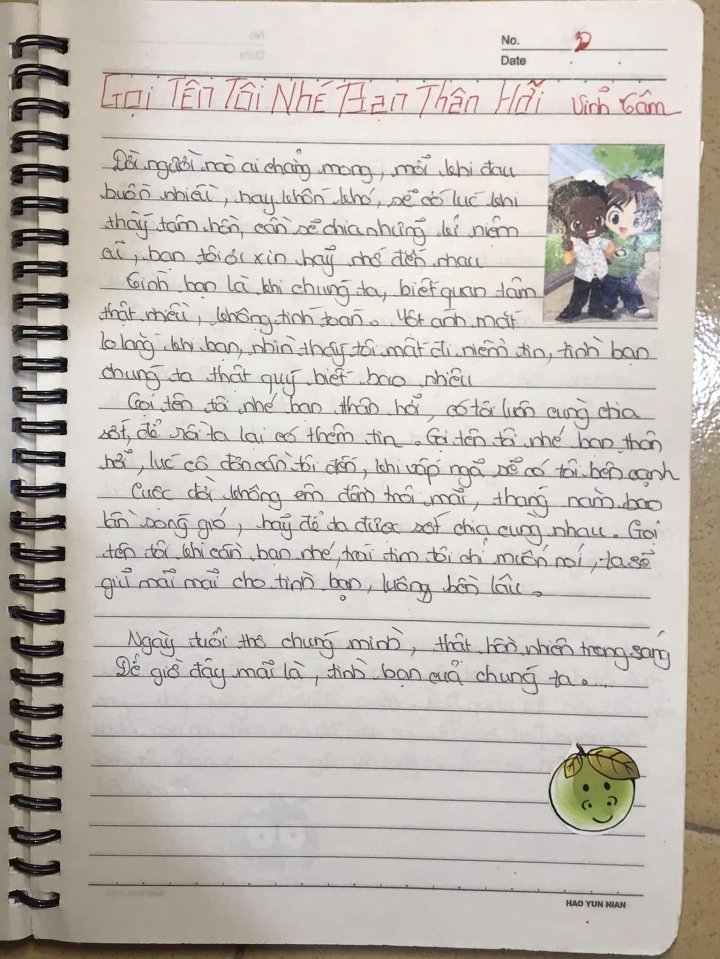 No. 2
Date
Gọi Tên Tôi Nhé Bạn Thân Hỡi Vinh Tâm
Đời người nào ai chẳng mong, mỗi khi đau
buồn nhiều, hay khốn khó, sẽ có lúc khi
thấy tâm hồn, cần sẻ chia những kỉ niệm
ai, bạn tôi ơi xin hãy nhớ đến nhau
Tình bạn là khi chúng ta, biết quan tâm
thật nhiều, không tính toan. Một ánh mắt
lo lắng khi bạn, nhìn thấy tôi mất đi niềm tin, tình bạn
chúng ta thật quý biết bao nhiêu
Gọi tên tôi nhé bạn thân hỡi, có tôi luôn cùng chia
sớt, để rồi ta lại có thêm tin. Gọi tên tôi nhé bạn thân
hỡi, lúc cô đơn cần tôi đến, khi vấp ngã sẽ có tôi bên cạnh
Cuộc đời không êm đềm trôi mãi, tháng năm bao
lần sóng gió, hãy để ta được sớt chia cùng nhau. Gọi
tên tôi khi cần bạn nhé, trái tim tôi chỉ muốn nói, ta sẽ
giữ mãi mãi cho tình bạn, luông bền lâu.
Ngày tuổi thơ chúng mình, thật hồn nhiên trong sáng
Để giờ đây mãi là, tình bạn của chúng ta....
HAO YUN NIAN